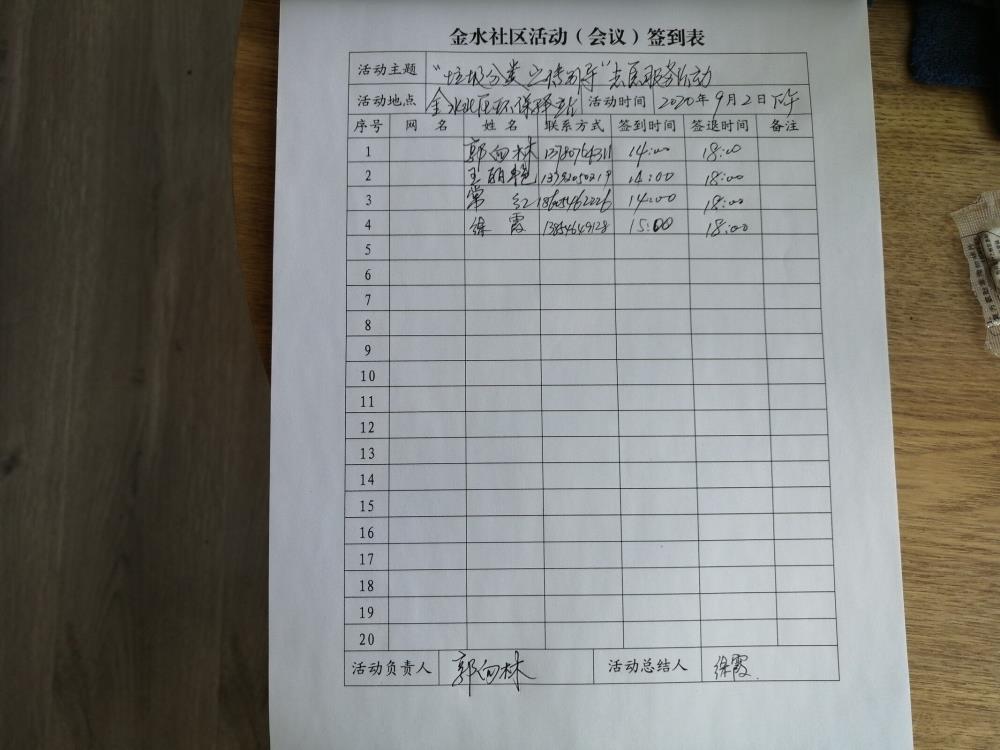 金水社区活动（会议）签到表
活动主题 "垃圾分类宣传引导"志愿服务活动
活动地点 金水社区环保驿站 活动时间 2020年9月2日下午
序号 网名 姓名 联系方式 签到时间 签退时间 备注
1 郭向林 14:00 18:00
2 王丽艳 14:00 18:00
3 常红 14:00 18:00
4 徐霞 13854649128 15:00 18:00
5
6
7
8
9
10
11
12
13
14
15
16
17
18
19
20
活动负责人 郭向林 活动总结人 徐霞